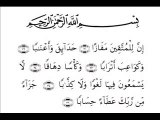 بِسْمِ اللَّهِ الرَّحْمَٰنِ الرَّحِيمِ
إِنَّ لِلْمُتَّقِينَ مَفَازًا ۝ حَدَائِقَ وَأَعْنَابًا ۝
وَكَوَاعِبَ أَتْرَابًا ۝ وَكَأْسًا دِهَاقًا ۝ لَا
يَسْمَعُونَ فِيهَا لَغْوًا وَلَا كِذَّابًا ۝ جَزَاءً
مِنْ رَبِّكَ عَطَاءً حِسَابًا ۝